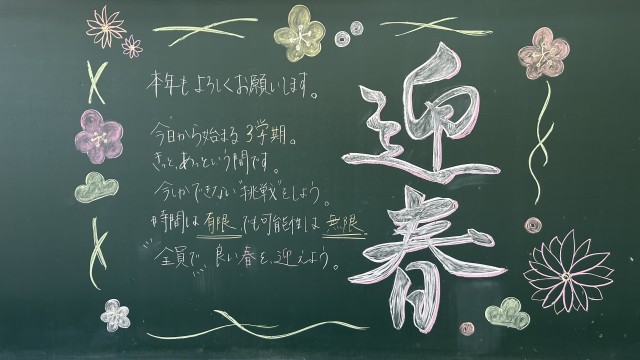 迎春
本年もよろしくお願いします。
今日から始まる3学期。
きっと、あっという間です。
今しかできない"挑戦"をしよう。
時間は有限、でも可能性は無限。
"全員で"良い春を、迎えよう。